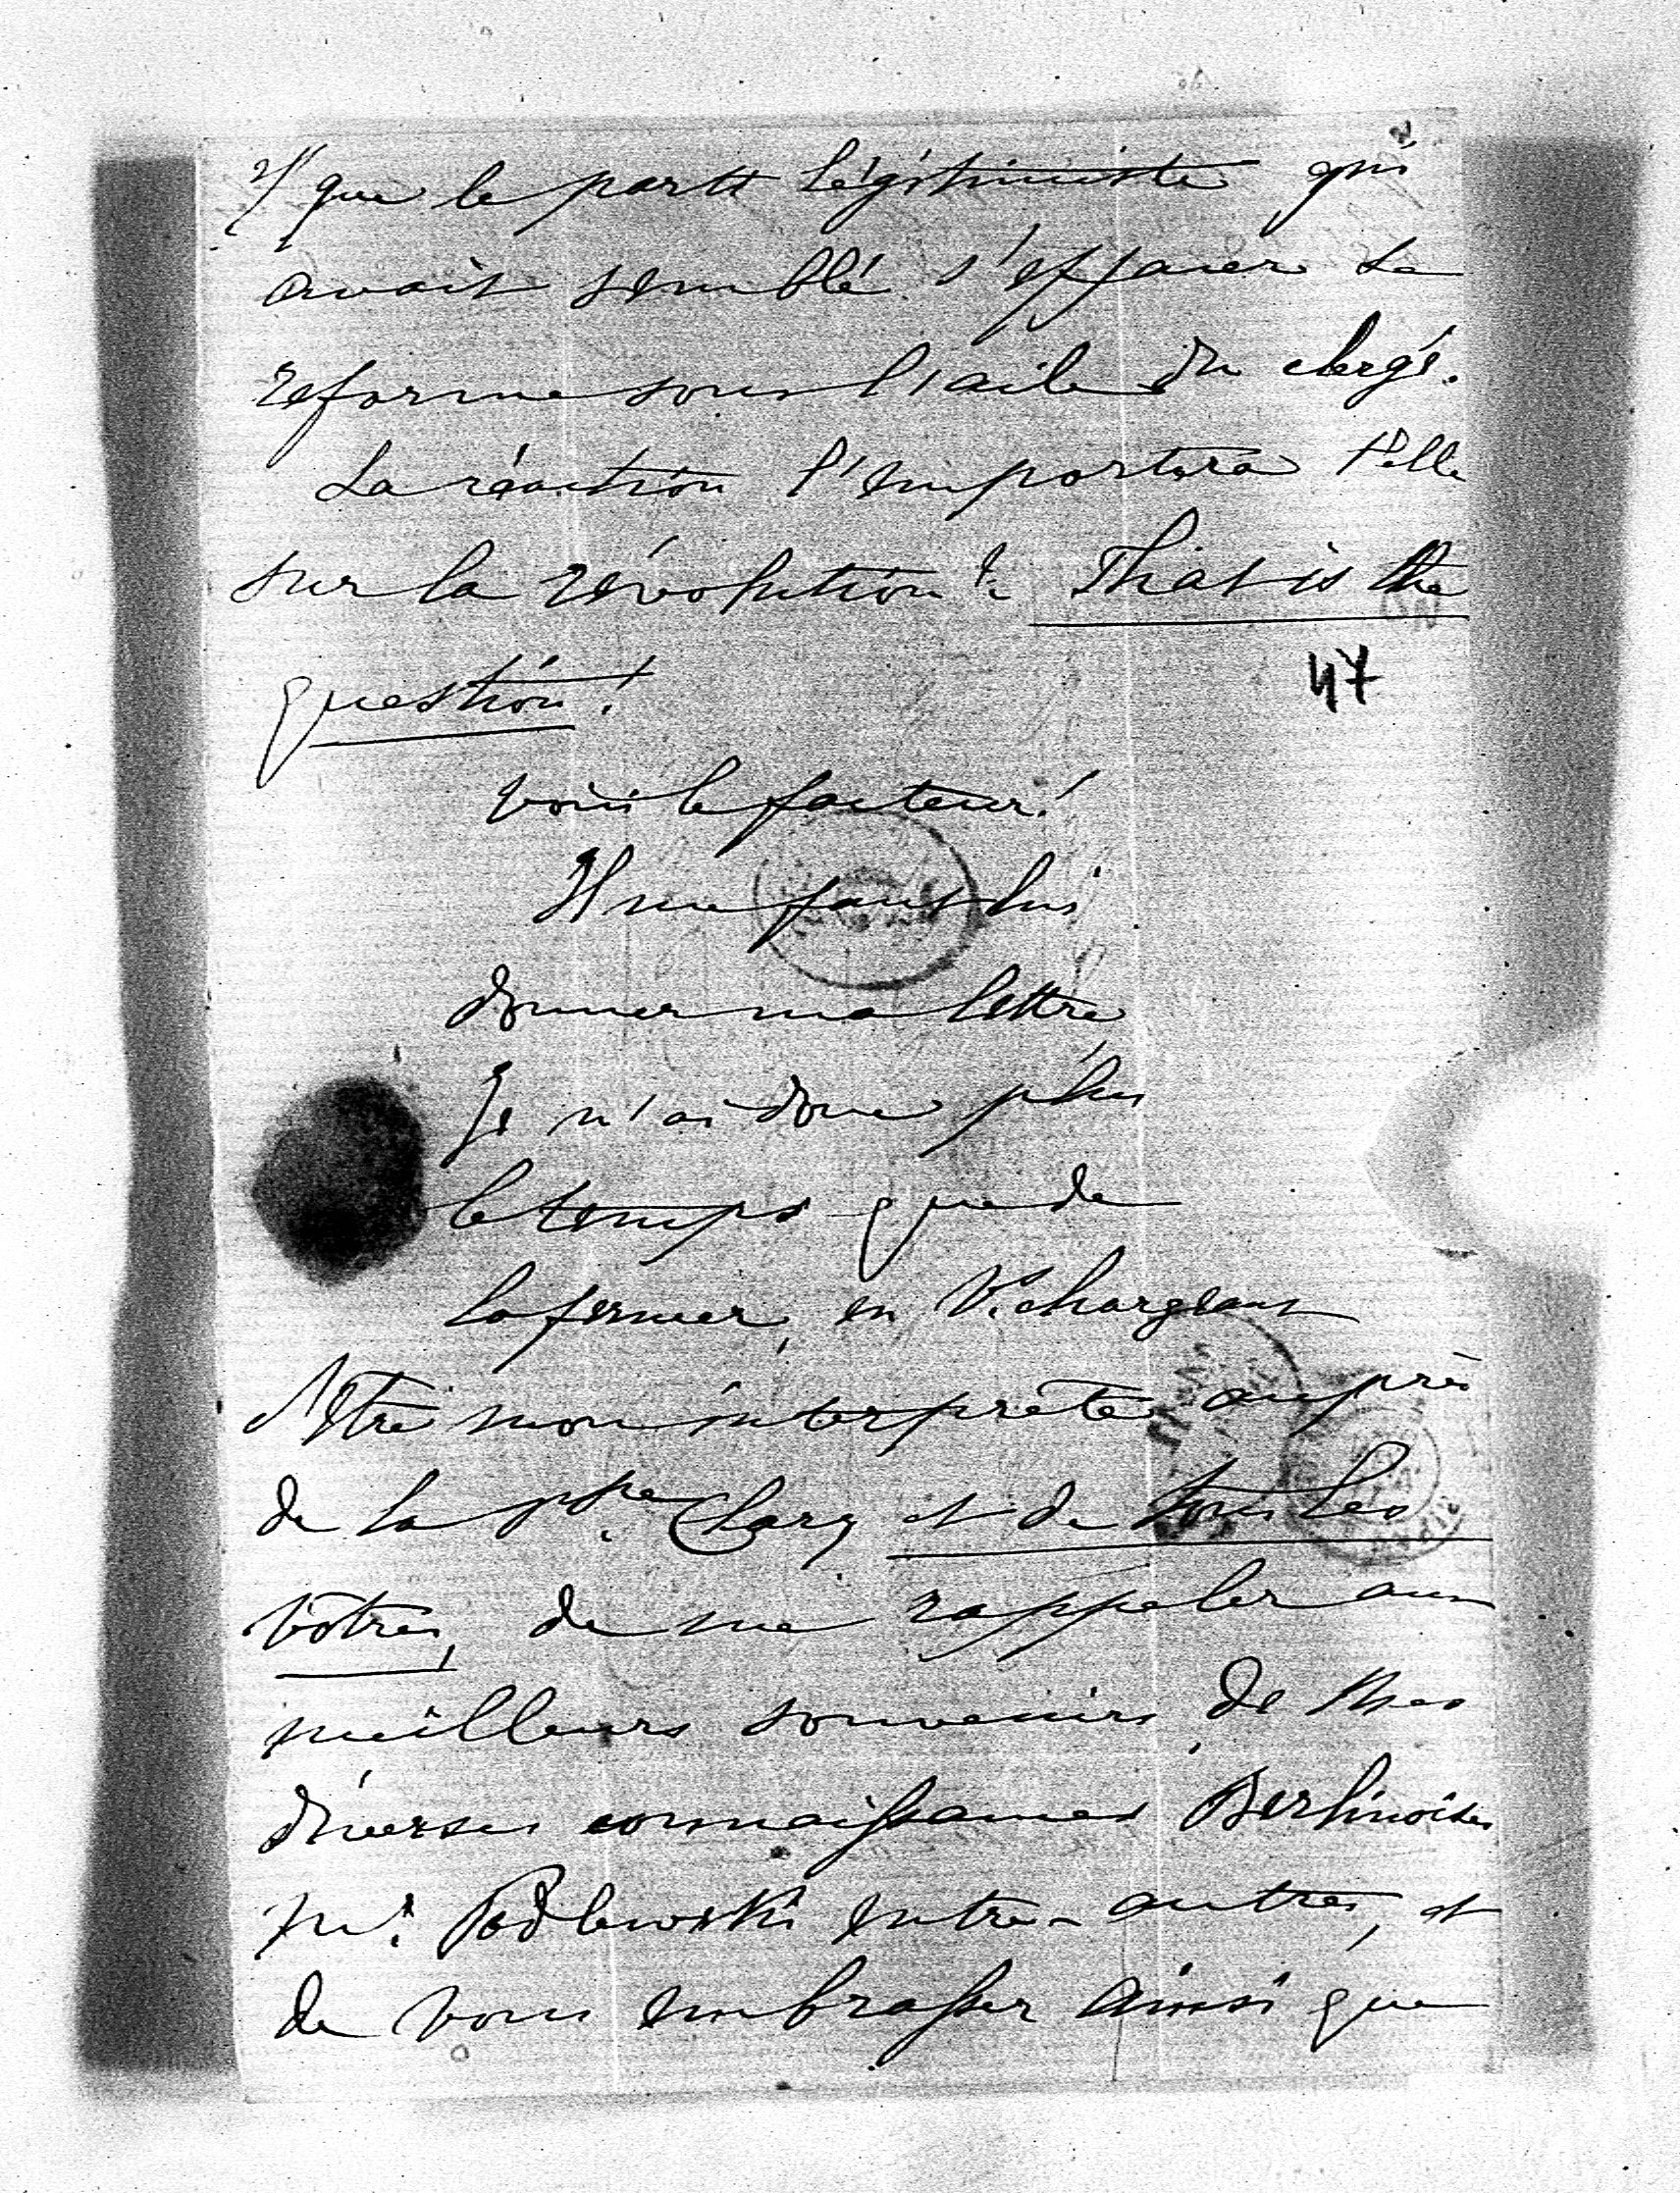 que le parti légitimiste qui
avait semblé s'effacer se
reforme sous l'aile du clergé.
La réaction l'emportera t'elle
sur la révolution? That is the
question!
47
Voici le facteur!
Il me faut lui
donner ma lettre
Je n'ai donc plus
le temps que de
la fermer, en V. chargeant
d'être mon interprète auprès
de la Psse. Clary et de tous les
vôtres, de me rappeler aux
meilleurs souvenirs de mes
diverses connaissances Berlinoises
Mr. Podlewski entre-autres, et
de vous embrasser ainsi que